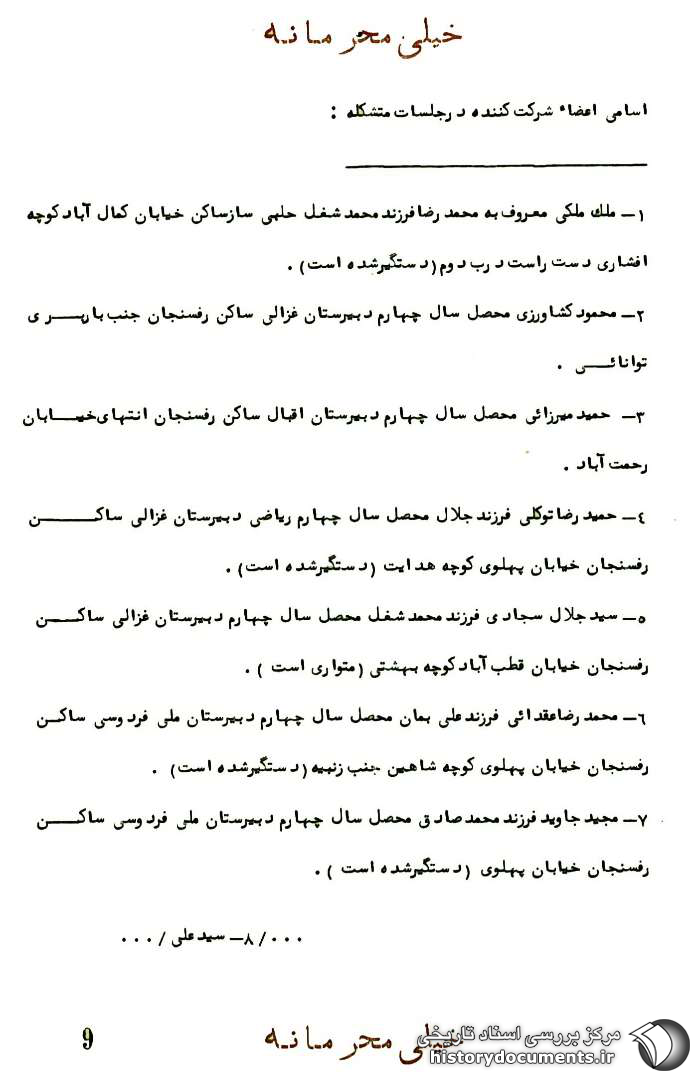 خیلی محرمانه
اسامی اعضاء شرکت کننده در جلسات متشکله :
۱- ملك ملکی معروف به محمد رضا فرزند محمد شغل حلبی ساز ساکن خیابان کمال آباد کوچه
افشاری دست راست درب دوم (دستگیر شده است) .
۲- محمود کشاورزی محصل سال چهارم دبیرستان غزالی ساکن رفسنجان جنب باربری
توانائی .
۳- حمید میرزائی محصل سال چهارم دبیرستان اقبال ساکن رفسنجان انتهای خیابان
رحمت آباد .
٤- حمید رضا توکلی فرزند جلال محصل سال چهارم ریاضی دبیرستان غزالی ساکن
رفسنجان خیابان پهلوی کوچه هدایت (دستگیر شده است) .
۵- سید جلال سجادی فرزند محمد شغل محصل سال چهارم دبیرستان غزالی ساکن
رفسنجان خیابان قطب آباد کوچه بهشتی (متواری است ) .
٦- محمد رضا عقدائی فرزند علی بمان محصل سال چهارم دبیرستان ملی فردوسی ساکن
رفسنجان خیابان پهلوی کوچه شاهین جنب زنبیه (دستگیر شده است) .
۷- مجید جاوید فرزند محمد صادق محصل سال چهارم دبیرستان ملی فردوسی ساکن
رفسنجان خیابان پهلوی (دستگیر شده است ) .
۰۰۰/ ۸- سید علی / ۰۰۰
9
خیلی محرمانه
مرکز بررسی اسناد تاریخی
historydocuments.ir